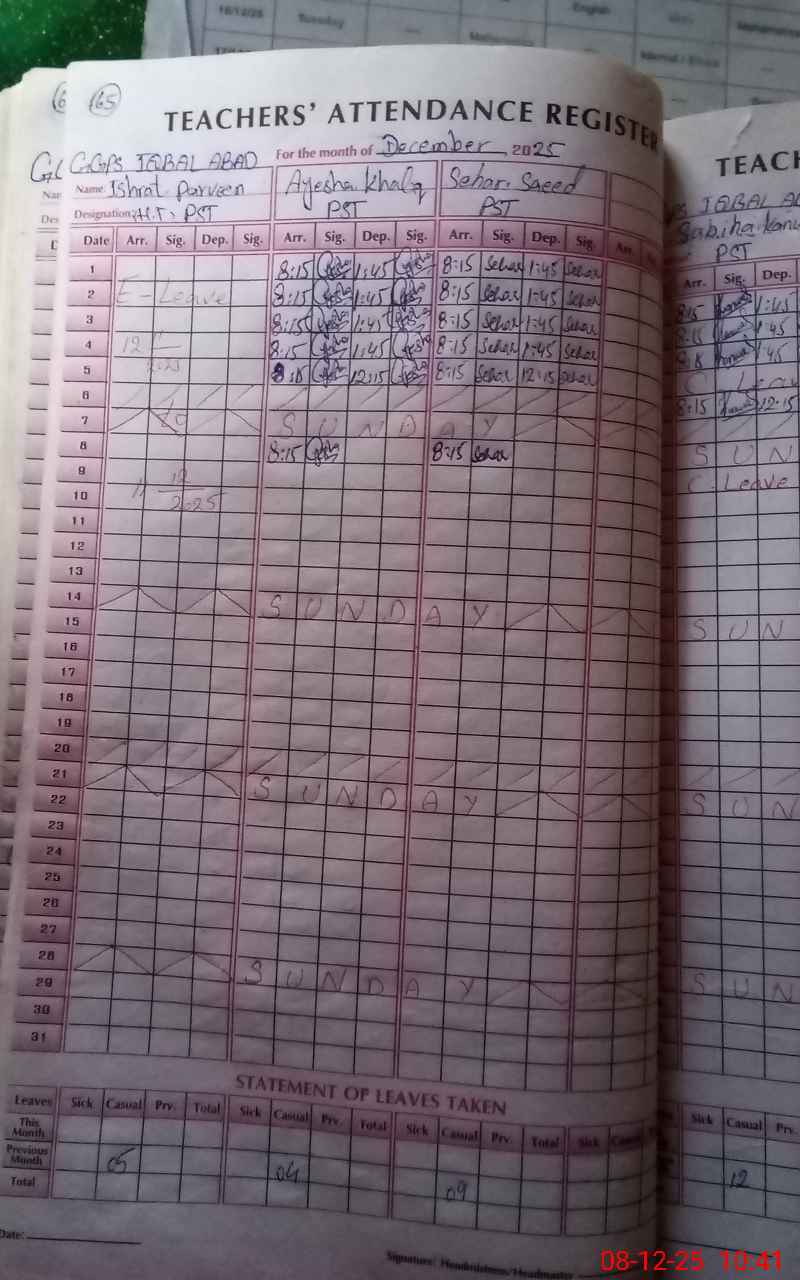 16/12/25 Tuesday English Mathematics
65
TEACHERS' ATTENDANCE REGISTER
GGPS IQBAL ABAD For the month of December 2025
Name Ishrat Parveen Ayesha Khalq Sehar Saeed
Designation H.T. PST PST PST
Date Arr. Sig. Dep. Sig. Arr. Sig. Dep. Sig. Arr. Sig. Dep. Sig. Arr.
1 8:15 1:45 8:15 Sehar 1:45 Sehar
2 E-Leave 8:15 1:45 8:15 Sehar 1:45 Sehar
3 8:15 1:45 8:15 Sehar 1:45 Sehar
4 12 8:15 1:45 8:15 Sehar 1:45 Sehar
5 2025 8:15 12:15 8:15 Sehar 12:15 Sehar
6
7 SUNDAY
8 8:15 8:15 Sehar
9 12
10 11 2025
11
12
13
14 SUNDAY
15
16
17
18
19
20
21 SUNDAY
22
23
24
25
26
27
28 SUNDAY
29
30
31
STATEMENT OF LEAVES TAKEN
Leaves Sick Casual Prv. Total Sick Casual Prv. Total Sick Casual Prv. Total Sick
This Month
Previous Month 05 04 09
Total
Date:
Signature: Headmistress/Headmaster
TEACH
IQBAL
Sabiha
PST
Arr. Sig. Dep.
8:15 1:45
8:15 1:45
8:15 1:45
C. Leave
8:15 12:15
SUN
C. Leave
SUN
SUN
SUN
Sick Casual Prv.
12
08-12-25 10:41